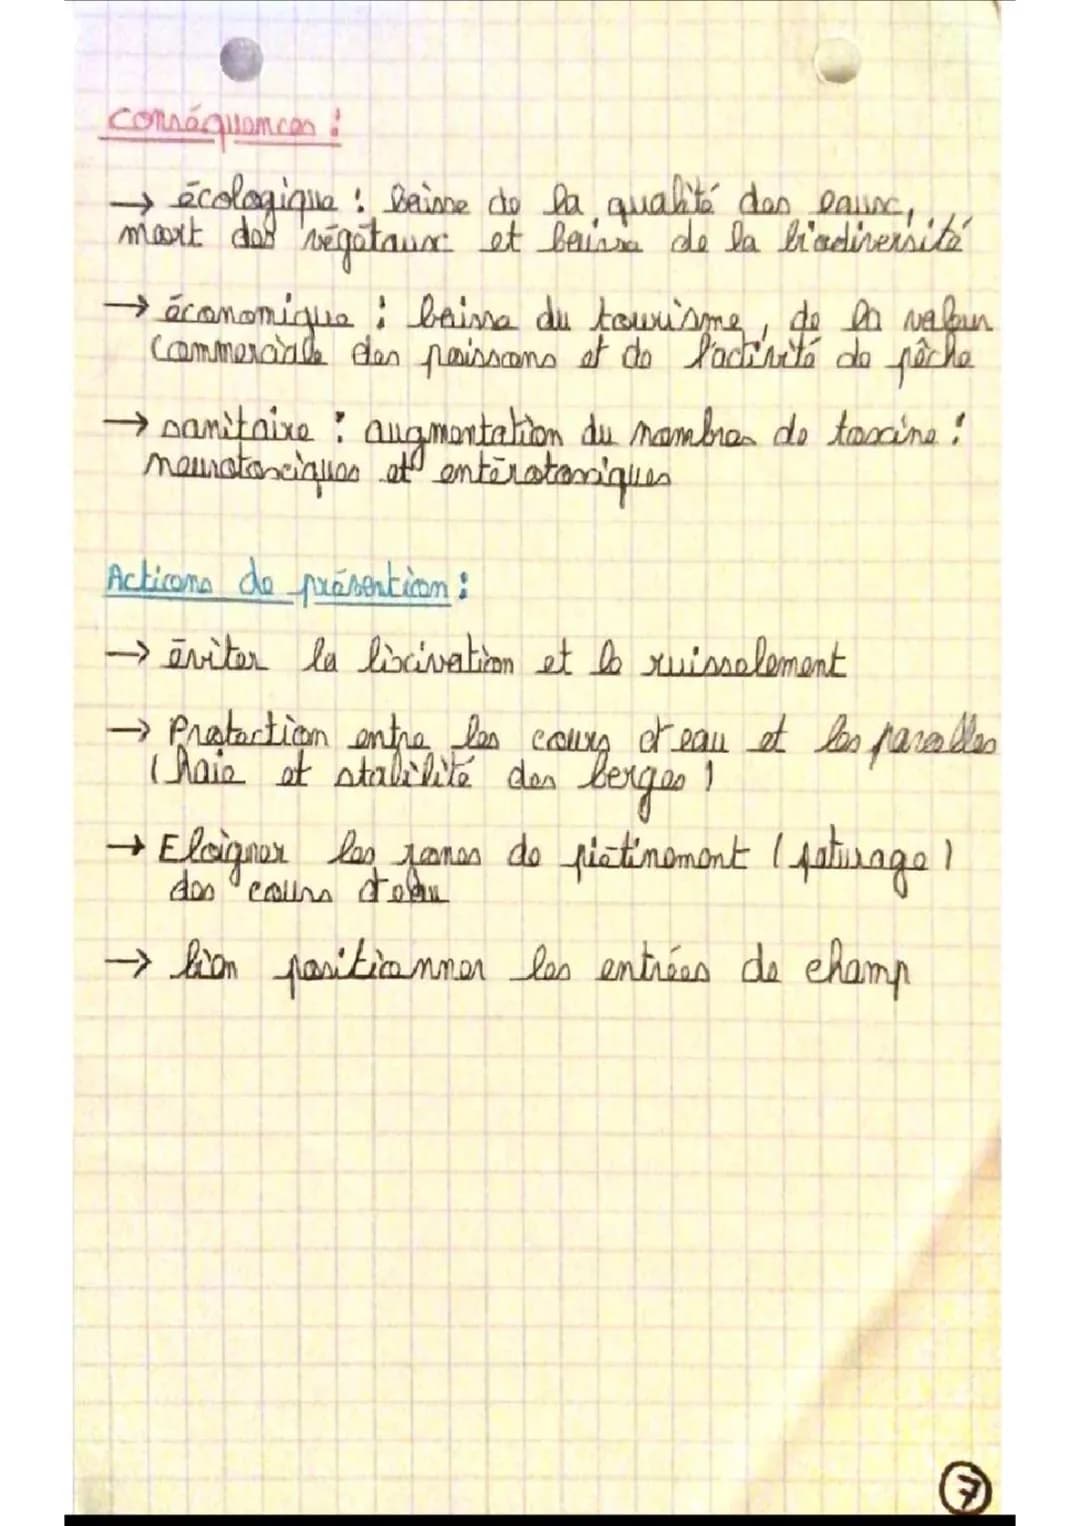 conséquences :
→ écologique : baisse de la qualité des eaux,
mort des végétaux et baisse de la biodiversité
→ économique : baisse du tourisme, de la valeur
commerciale des poissons et de l'activité de pêche
→ sanitaire : augmentation du nombres de toxine :
neurotoxiques et entérotoxiques
Actions de prévention :
→ éviter la lixivation et le ruisselement
→ Protection entre les cours d'eau et les parcelles
(haie et stabilité des berges)
→ Eloigner les zones de piétinement (paturage)
des cours d'eau
→ bien positionner les entrées de champ
7